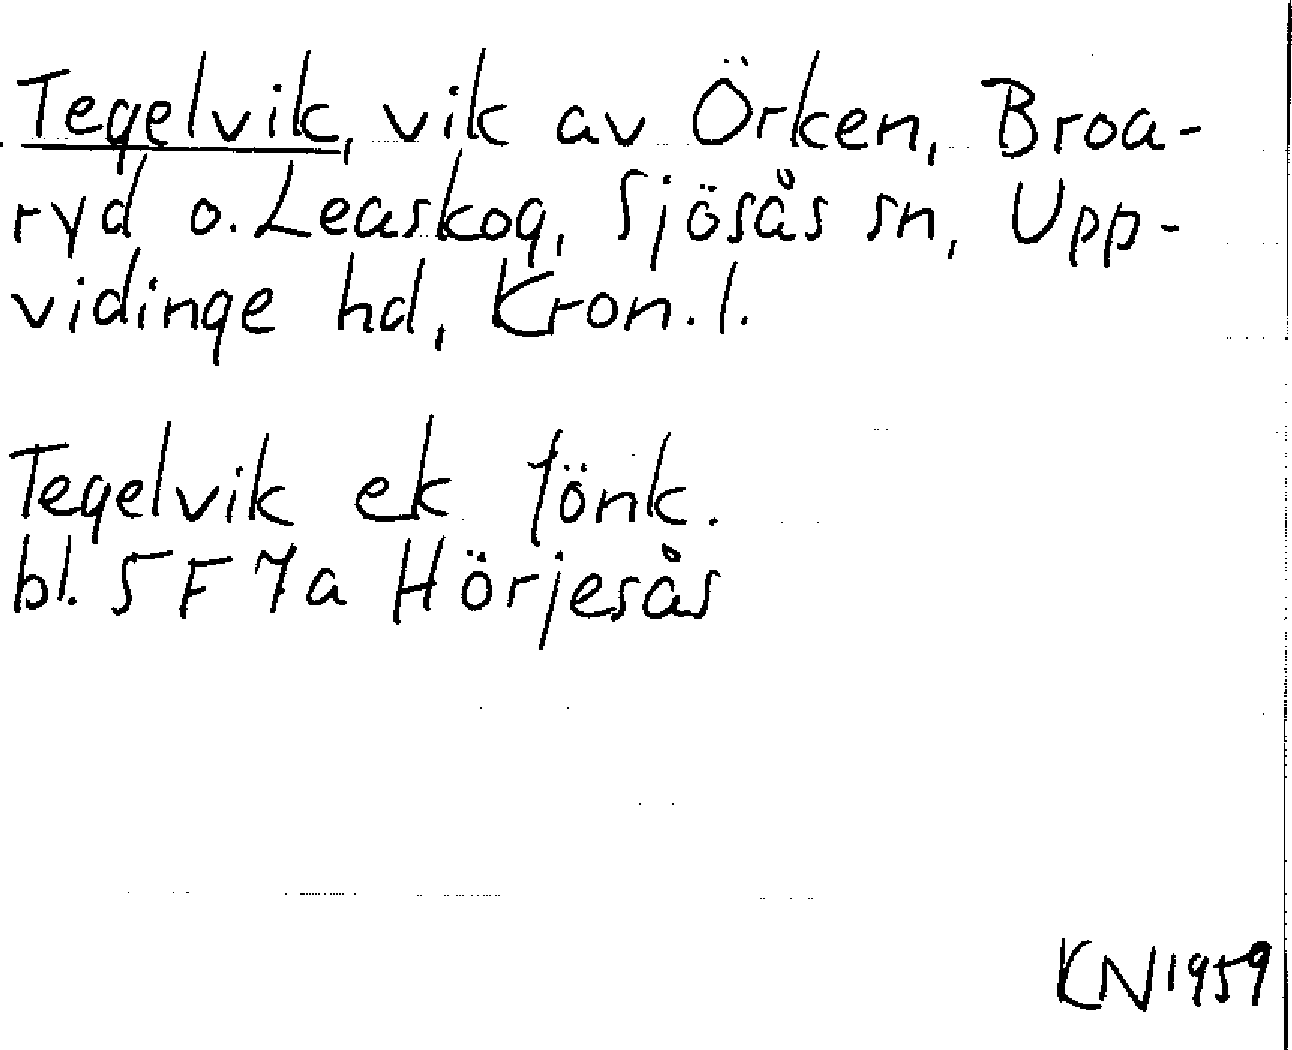 Tegelvik, vik av Örken, Broa-
ryd o. Leaskog, Sjösås sn, Upp-
vidinge hd, Kron. l.
Tegelvik ek Jönk.
bl. 5 F 7a Hörjesås
KN 1959